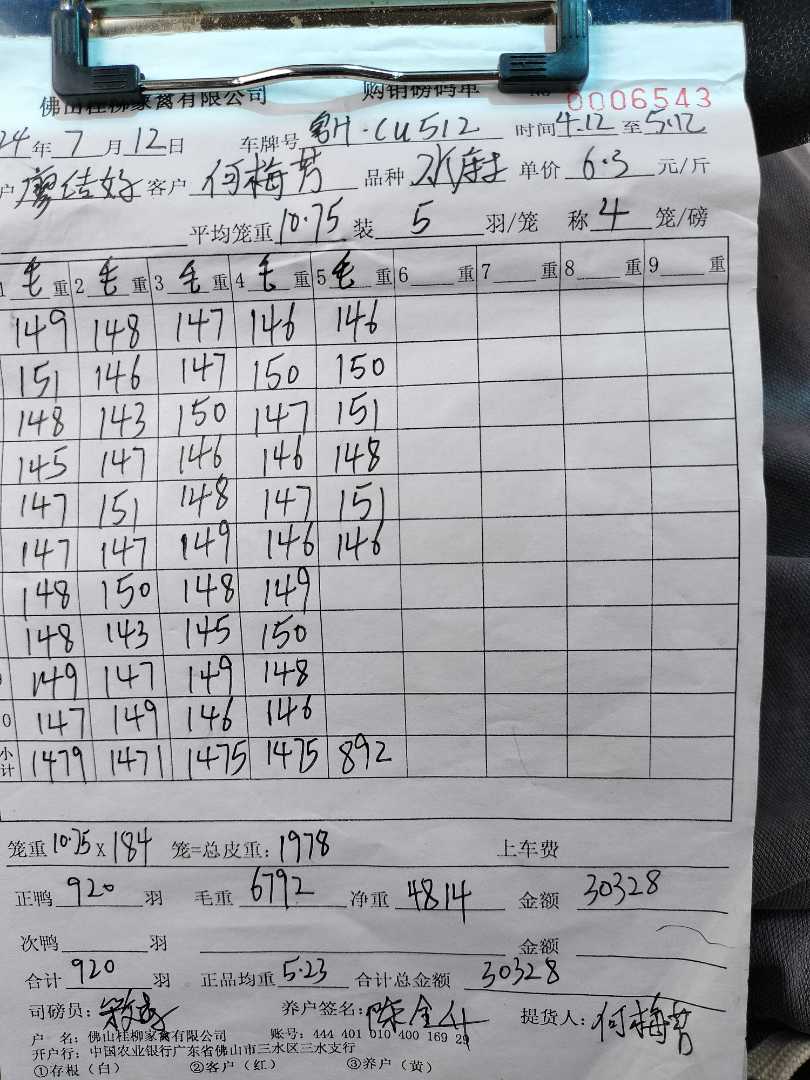 佛山桂柳家禽有限公司 购销磅码单 No 0006543
24年7月12日 车牌号 CU512 时间4.12至5.12
户 廖结好 客户 何梅芳 品种 水鸭 单价 6.3 元/斤
平均笼重10.75装 5 羽/笼 称 4 笼/磅
1毛重 2毛重 3毛重 4毛重 5毛重 6 重 7 重 8 重 9 重
149 148 147 146 146
151 146 147 150 150
148 143 150 147 151
145 147 146 146 148
147 151 148 147 151
147 147 149 146 146
148 150 148 149
148 143 145 150
149 147 149 148
0 147 149 146 146
小计 1479 1471 1475 1475 892
笼重10.75×184 笼=总皮重:1978 上车费
正鸭 920 羽 毛重 6792 净重 4814 金额 30328
次鸭 羽 金额
合计 920 羽 正品均重5.23 合计总金额 30328
司磅员: 养户签名: 提货人:何梅芳
户 名:佛山桂柳家禽有限公司 账号:444 401 010 400 169 29
开户行:中国农业银行广东省佛山市三水区三水支行
①存根(白) ②客户(红) ③养户(黄)